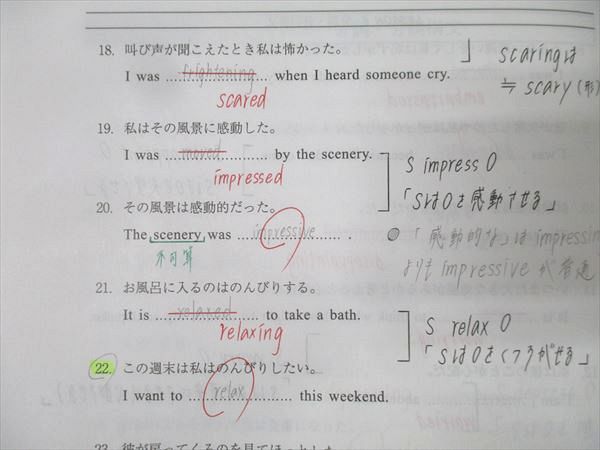 18. 叫び声が聞こえたとき私は怖かった。
I was frightening when I heard someone cry.
scared
」 scaringは
≒ scary (形)
19. 私はその風景に感動した。
I was moved by the scenery.
impressed
S impress O
「SはOを感動させる」
20. その風景は感動的だった。
The scenery was impressive.
不可算
「感動的な」はimpressin
よりもimpressiveが普通
21. お風呂に入るのはのんびりする。
It is relaxed to take a bath.
relaxing
S relax O
「SはOをくつろがせる」
22. この週末は私はのんびりしたい。
I want to relax this weekend.
23. 彼が戻ってくるのを見てほっとした